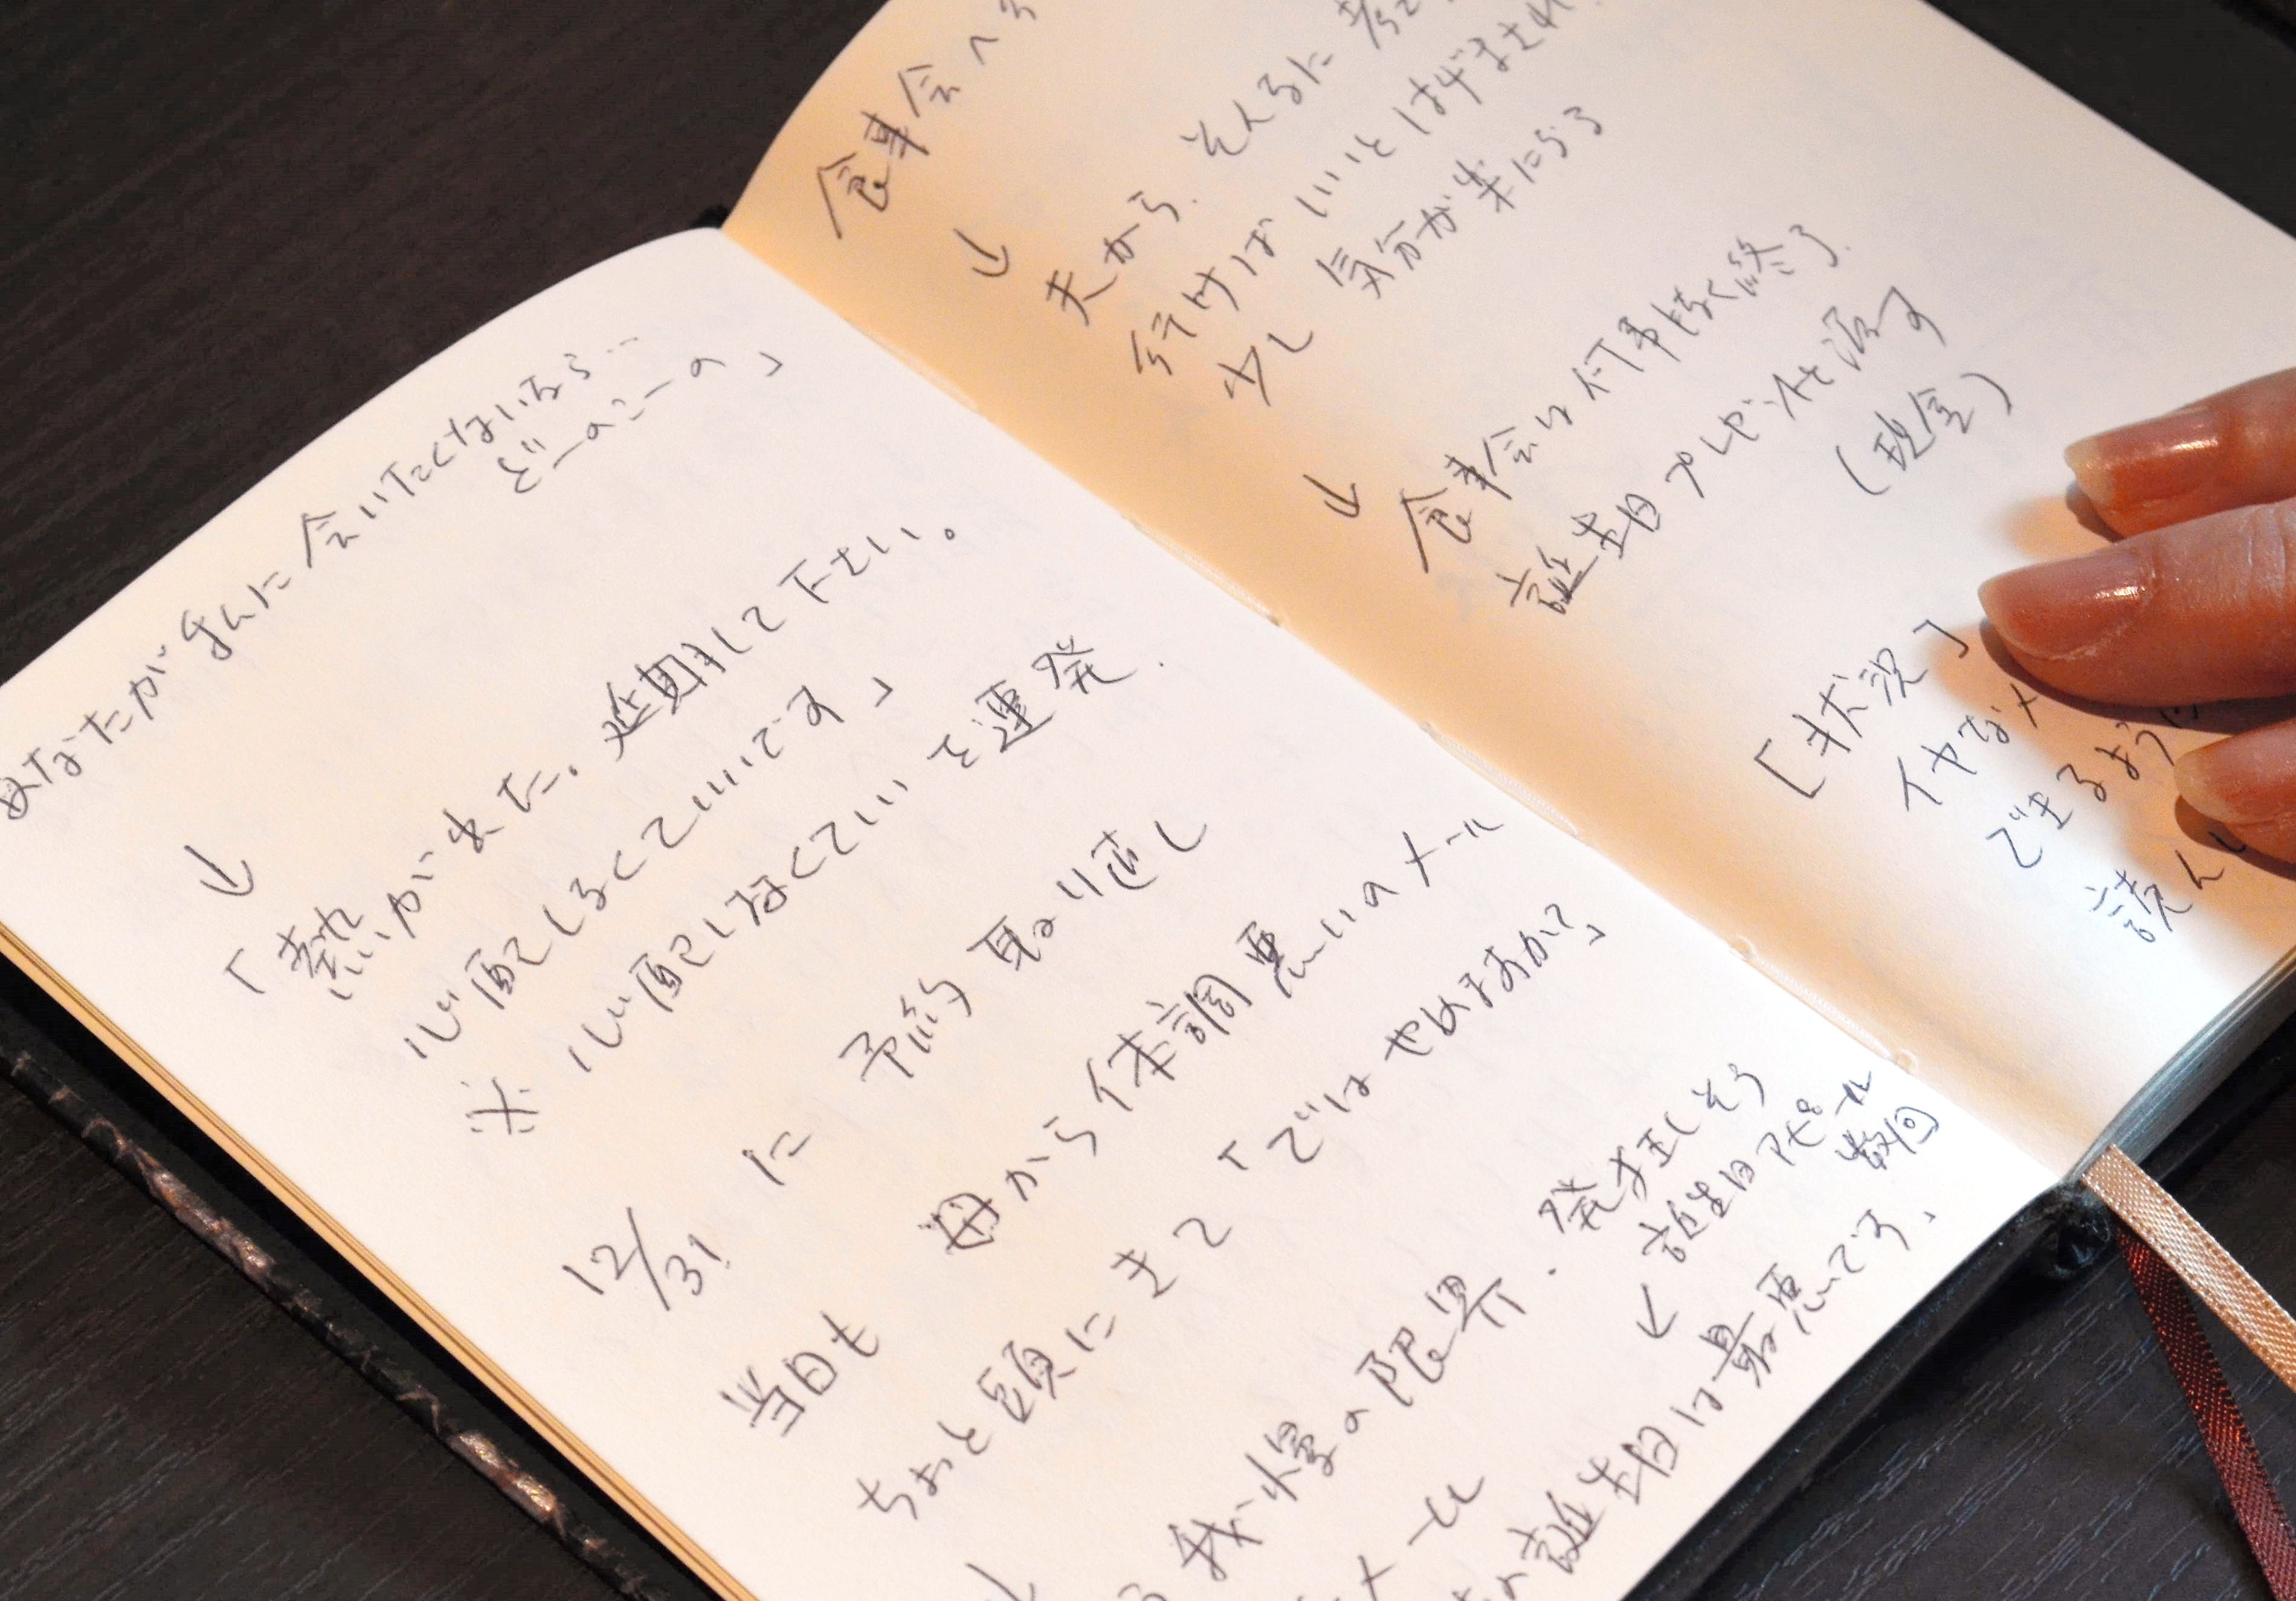 あなたが私に会いたくないなら…
どーのこーの」
↓
「熱が出た。延期して下さい。
心配しなくていいです」
※ 心配しなくていい を連発.
12/31 に 予約 取り直し
当日も 母から 体調悪いのメール
ちょっと頭にきて「ではやめますか?」
↓
我慢の限界. 発狂しそう
誕生日アピール
数回
↓
メール
誕生日は最悪です、
食事会へ
↓
夫から. そんなに
行けばいいとはげまされ
少し 気分が楽になる
↓
食事会は何事もなく終了.
誕生日プレゼントを渡す
(現金)
[状況]
イヤなメ
できるよう
読んで